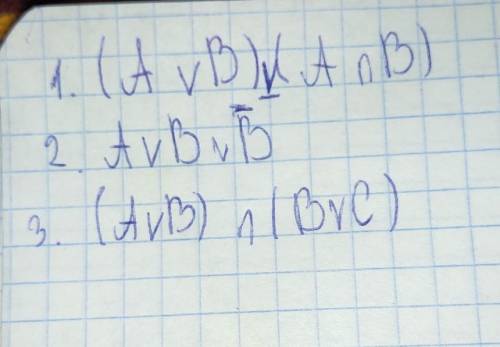 1. (A ∨ B) ⊻ (A ∩ B)
2. A ∨ B ∨ B̅
3. (A ∨ B) ∩ (B ∨ C)